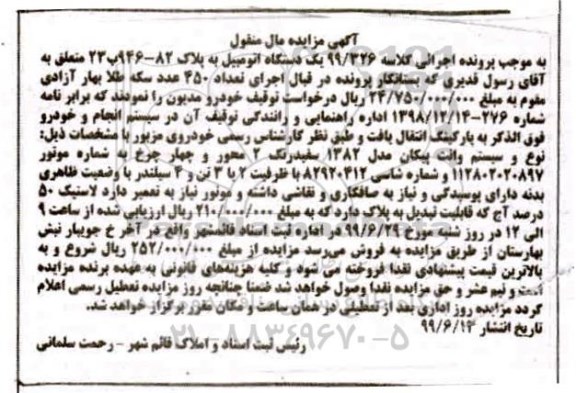 آگهی مزایده مال منقول
به موجب پرونده اجرائی کلاسه ۹۹/۳۲۶ یک دستگاه اتومبیل به پلاک ۸۲-۹۴۶ب۲۳ متعلق به
آقای رسول قدیری که بستانکار پرونده در قبال اجرای تعداد ۴۵۰ عدد سکه طلا بهار آزادی
مقوم به مبلغ ۲۴/۷۵۰/۰۰۰/۰۰۰ ریال درخواست توقیف خودرو مدیون را نمودند که برابر نامه
شماره ۲۷۶-۱۳۹۸/۱۲/۱۴ اداره راهنمایی و رانندگی توقیف آن در سیستم انجام و خودرو
فوق الذکر به پارکینگ انتقال یافت و طبق نظر کارشناس رسمی خودروی مزبور با مشخصات ذیل:
نوع و سیستم وانت پیکان مدل ۱۳۸۲ سفیدرنگ ۲ محور و چهار چرخ به شماره موتور
۱۱۲۸۰۲۰۲۰۸۹۷ و شماره شاسی ۸۲۹۲۰۴۱۲ با ظرفیت ۲ یا ۳ تن و ۴ سیلندر با وضعیت ظاهری
بدنه دارای پوسیدگی و نیاز به صافکاری و نقاشی داشته و موتور نیاز به تعمیر دارد لاستیک ۵۰
درصد آج که قابلیت تبدیل به پلاک دارد که به مبلغ ۲۱۰/۰۰۰/۰۰۰ ریال ارزیابی شده از ساعت ۹
الی ۱۲ در روز شنبه مورخ ۹۹/۶/۲۹ در اداره ثبت اسناد قائمشهر واقع در آخر خ جویبار نبش
بهارستان از طریق مزایده به فروش می‌رسد مزایده از مبلغ ۲۵۲/۰۰۰/۰۰۰ ریال شروع و به
بالاترین قیمت پیشنهادی نقدا فروخته می شود و کلیه هزینه‌های قانونی به عهده برنده مزایده
است و نیم عشر و حق مزایده نقدا وصول خواهد شد ضمنا چنانچه روز مزایده تعطیل رسمی اعلام
گردد مزایده روز اداری بعد از تعطیلی در همان ساعت و مکان مقرر برگزار خواهد شد.
تاریخ انتشار ۹۹/۶/۱۳
رئیس ثبت اسناد و املاک قائم شهر - رحمت سلمانی
۰۲۱-۸۸۳۴۹۶۷۰-۵